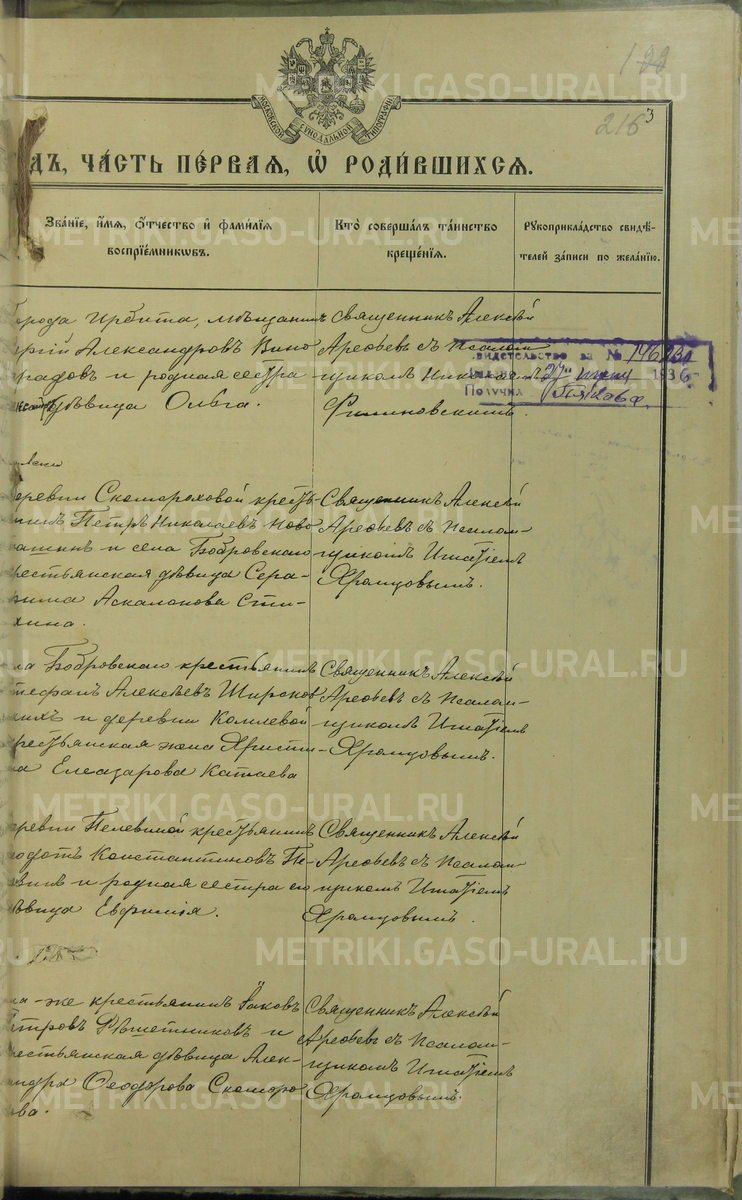 122
216
3
МОСКОВСКОЙ СѴНОДАЛЬНОЙ ТИПОГРАФІИ
ДЪ, ЧА́СТЬ ПЕ́РВАѦ, Ѡ҆ РОДИ́ВШИХСѦ.
Зва́нїе, и҆́мѧ, ѻ҆́тчество и҆ фами́лїѧ
воспрїе́мникѡвъ.
Кто̀ соверша́лъ та́инство
креще́нїѧ.
Рꙋкоприкла́дство свидѣ́-
телей за́писи по жела́нїю.
города Ирбита, мѣщанинъ
ргій Александровъ Вино
градовъ и родная сестра
дѣвица Ольга.
Священникъ Алексѣй
Арефьевъ съ псалом-
щикомъ Николаемъ
Филиновскимъ.
свидетельство за № 146230
1936 г
Получил
деревни Скомороховой кресть-
нинъ Петръ Николаевъ Ново
пашинъ и села Бобровскаго
крестьянская дѣвица Сера-
фима Аскалонова Сти-
хина.
Священникъ Алексѣй
Арефьевъ съ псалом-
щикомъ Игнатіемъ
Храмцовымъ.
ла Бобровскаго крестьянинъ
Стефанъ Алексѣевъ Ширинк
кихъ и деревни Комлевой
крестьянская жена Христи-
на Елеазарова Катаева
Священникъ Алексѣй
Арефьевъ съ псалом-
щикомъ Игнатіемъ
Храмцовымъ.
деревни Пелевиной крестьянинъ
Ѳеодотъ Константиновъ Пе-
левинъ и родная сестра его
дѣвица Евфимія.
Священникъ Алексѣй
Арефьевъ съ псалом-
щикомъ Игнатіемъ
Храмцовымъ.
ла-же крестьянинъ Яковъ
Петровъ Рѣшетниковъ и
крестьянская дѣвица Алек-
сандра Ѳеодорова Скоморо
хова.
Священникъ Алексѣй
Арефьевъ съ псалом-
щикомъ Игнатіемъ
Храмцовымъ.
METRIKI.GASO-URAL.RU